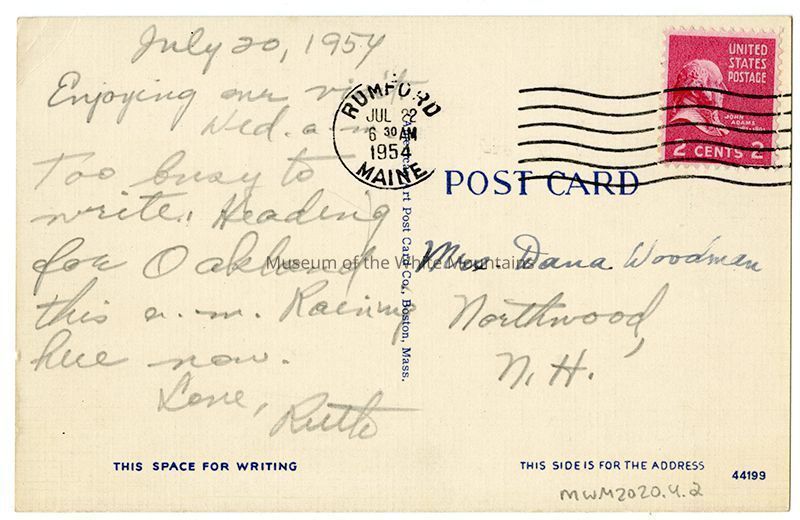 July 20, 1954
Enjoying our visit
Wed. a.m.
Too busy to
write. Heading
for Oakland
this a.m. Raining
here now.
Love,
Ruth
THIS SPACE FOR WRITING
RUMFORD
JUL 22
6 30 AM
1954
MAINE
American Art Post Card Co., Boston, Mass.
UNITED
STATES
POSTAGE
JOHN
ADAMS
2 CENTS 2
POST CARD
Mrs. Dana Woodman
Northwood,
N.H.
Museum of the White Mountains
THIS SIDE IS FOR THE ADDRESS
44199
MWM2020.4.2